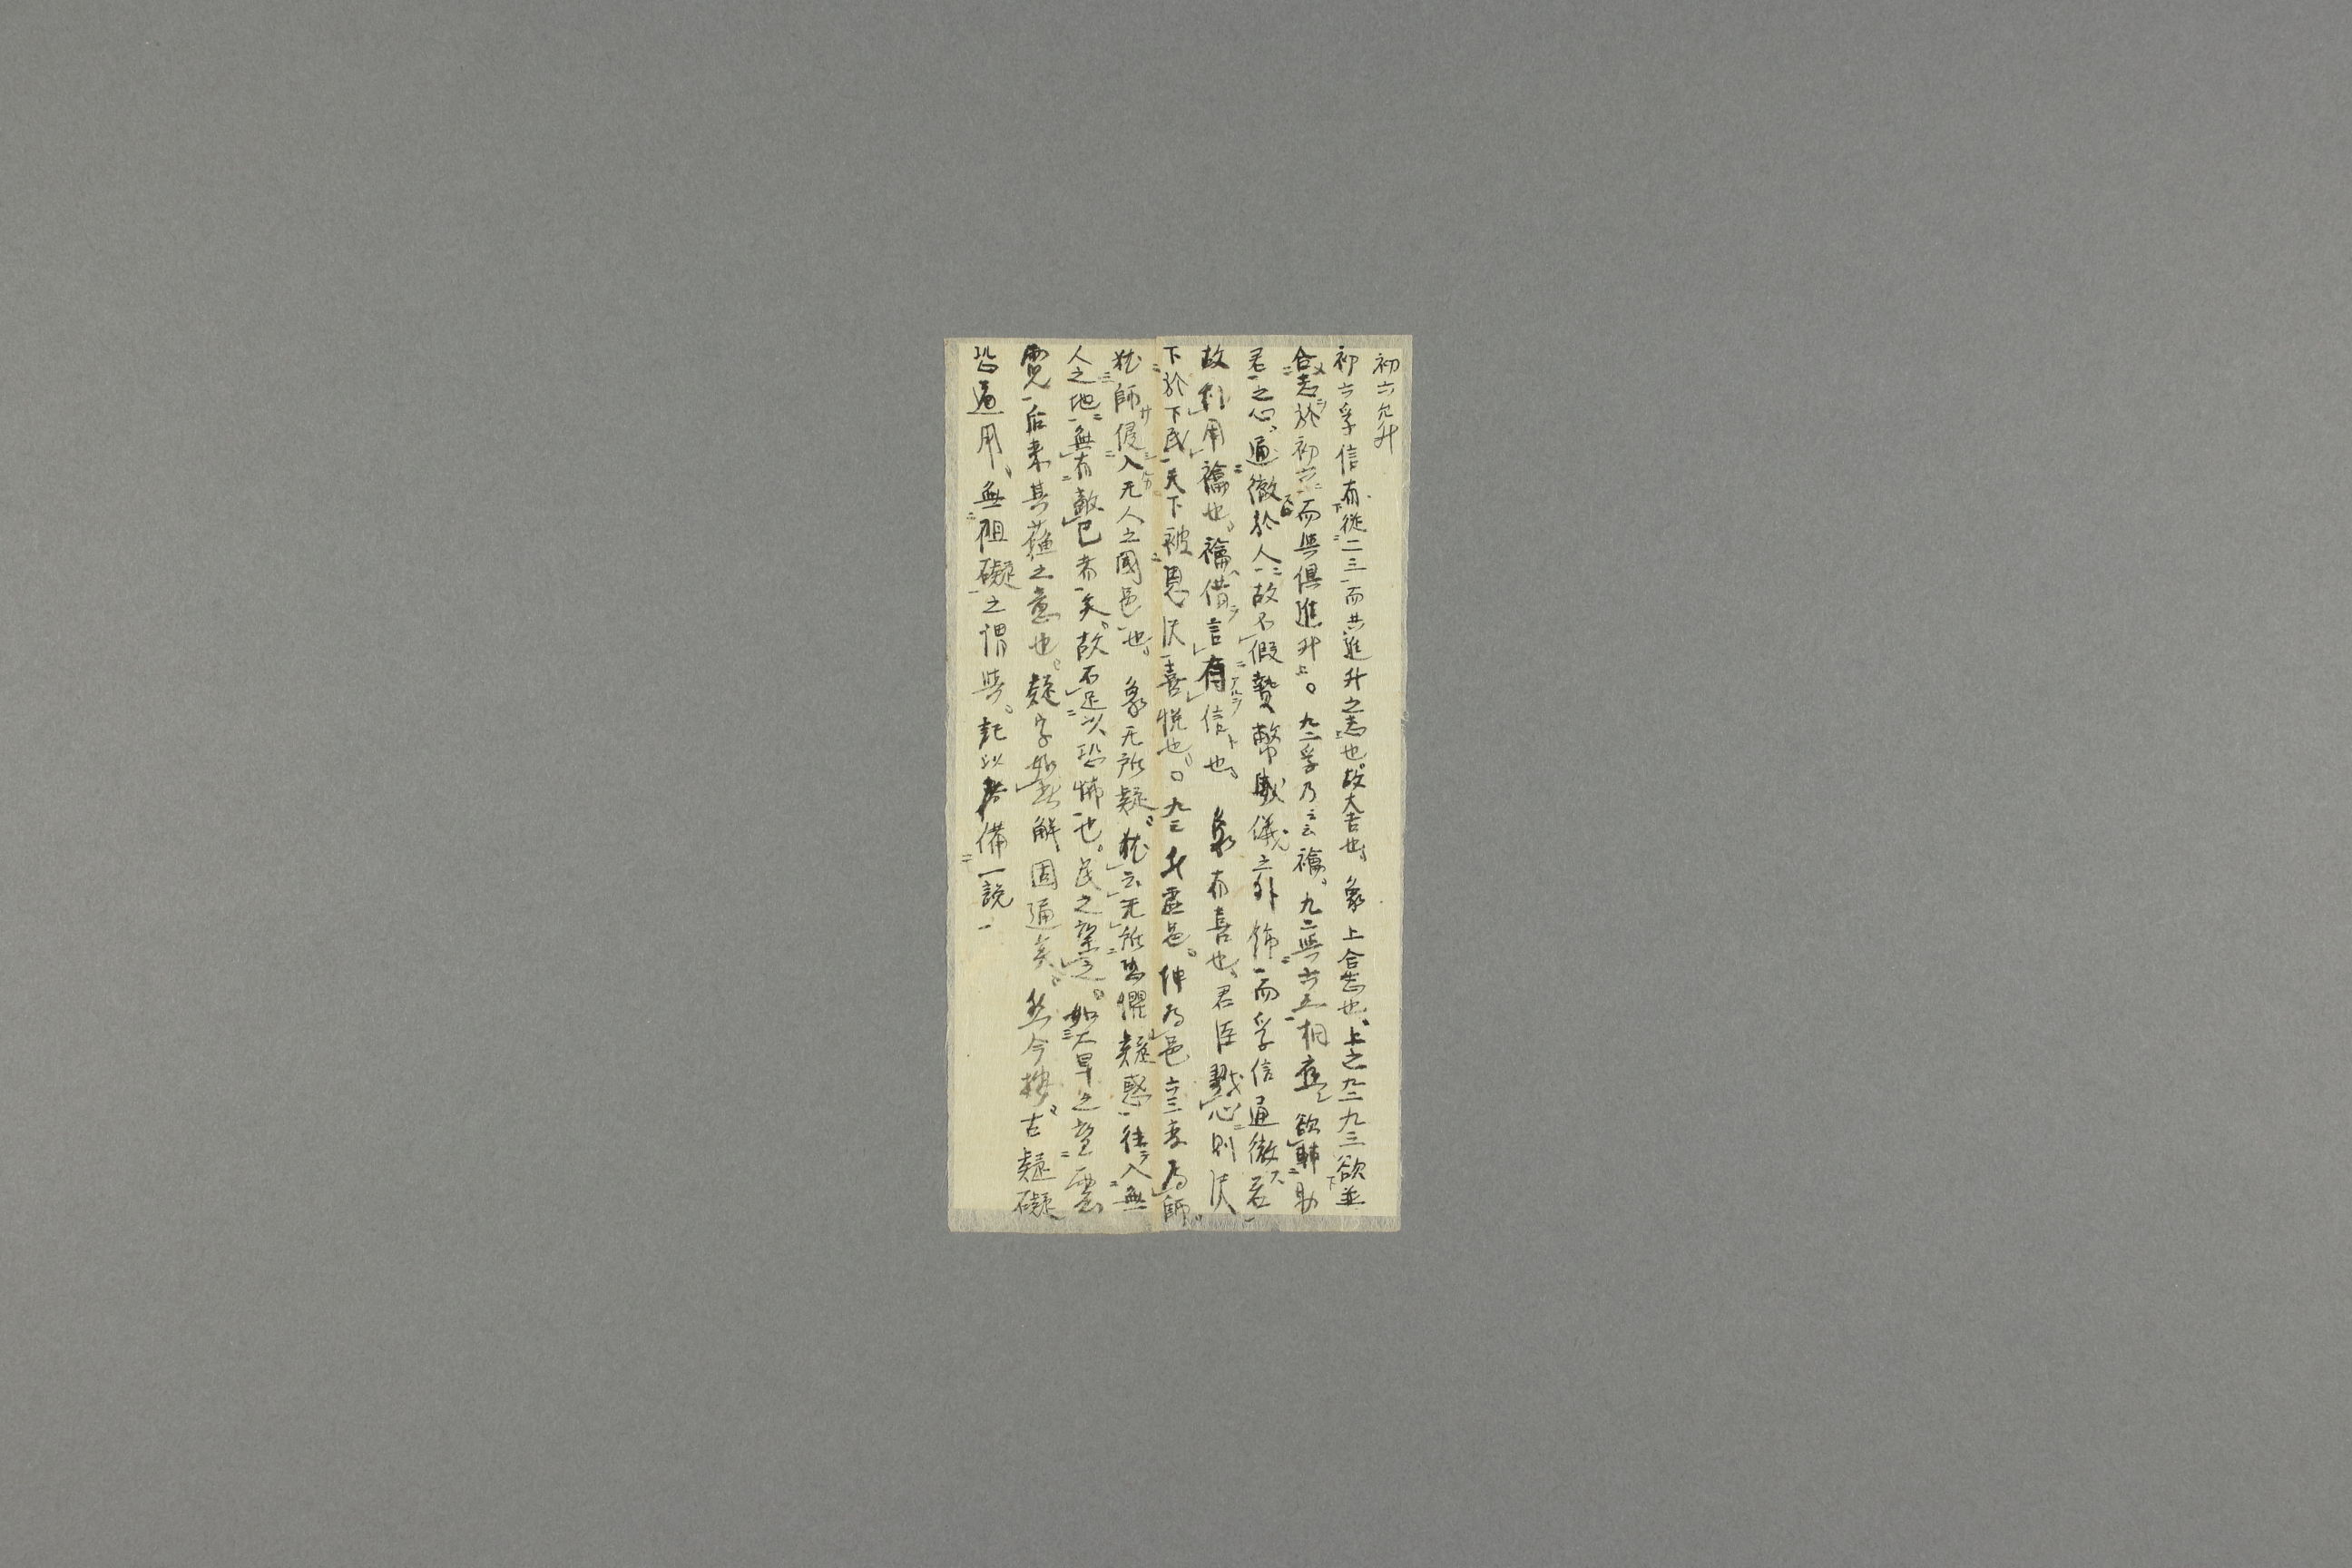 初六允升
初六孚信有從二三而共進升之志也故大吉也 象上合志也上之九二九三欲並
合志於初六而與俱進升上〇九二孚乃云禴九二與六五相應欲輔助
君之心通徹於人故不假贄幣威儀之外飾而孚信通徹君
故利用禴也禴借言有信也 象有喜也君臣戮心則沃
下於下民天下被恩沃喜悦也〇九三升虚邑伸為邑六三变為師
犹師侵入无人之國邑也 象无所疑犹云无所恐懼疑惑往入無
人之地無有敵已者矣故不足以恐怖也民之望之如大旱之望雲
霓后来其蘓之意也疑字如此解固通矣然今按古疑礙
恐通用無阻礙之謂與記以備一説